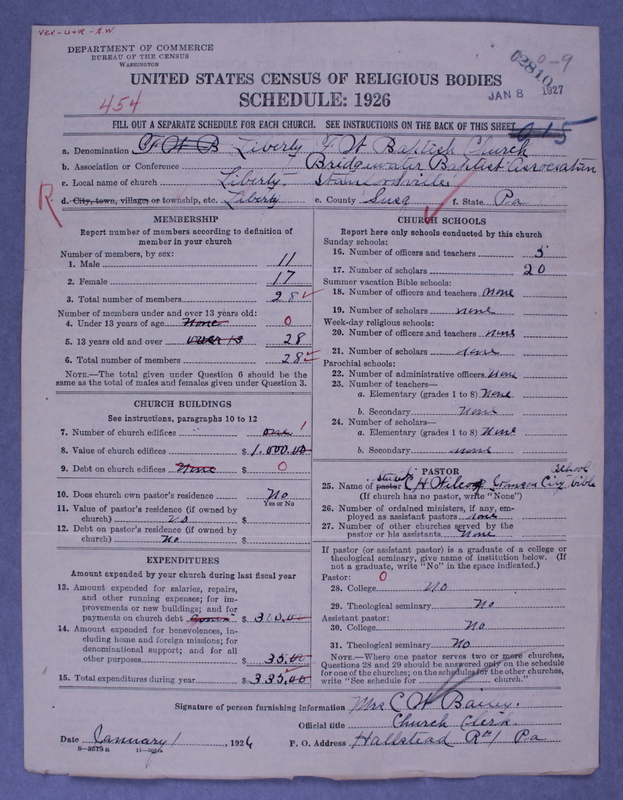 Ver. - U+R. - A.W.
DEPARTMENT OF COMMERCE
BUREAU OF THE CENSUS
WASHINGTON
02810 0-9
JAN 8 1927
UNITED STATES CENSUS OF RELIGIOUS BODIES
SCHEDULE: 1926
454
FILL OUT A SEPARATE SCHEDULE FOR EACH CHURCH. SEE INSTRUCTIONS ON THE BACK OF THIS SHEET
015
a. Denomination F W B Liberty F. W Baptist Church
b. Association or Conference Bridgewater Baptist Association
c. Local name of church Liberty.
R
d. City, town, village, or township, etc. Liberty e. County Susq f. State Pa
MEMBERSHIP
Report number of members according to definition of member in your church
Number of members, by sex:
1. Male 11
2. Female 17
3. Total number of members 28
Number of members under and over 13 years old:
4. Under 13 years of age None 0
5. 13 years old and over over 13 28
6. Total number of members 28
NOTE.—The total given under Question 6 should be
same as the total of males and females given under Question 3.
CHURCH BUILDINGS
See instructions, paragraphs 10 to 12
7. Number of church edifices one 1
8. Value of church edifices $ 1,000.00
9. Debt on church edifices None $ 0
10. Does church own pastor's residence No
Yes or No
11. Value of pastor's residence (if owned by
church) no $
12. Debt on pastor's residence (if owned by
church) No $
EXPENDITURES
Amount expended by your church during last fiscal year
13. Amount expended for salaries, repairs,
and other running expenses; for im-
provements or new buildings; and for
payments on church debt $ 310.00
14. Amount expended for benevolences, in-
cluding home and foreign missions; for
denominational support; and for all
other purposes $ 35.00
15. Total expenditures during year $ 335.00
CHURCH SCHOOLS
Report here only schools conducted by this church
Sunday schools:
16. Number of officers and teachers 5
17. Number of scholars 20
Summer vacation Bible schools:
18. Number of officers and teachers none
19. Number of scholars none
Week-day religious schools:
20. Number of officers and teachers none
21. Number of scholars none
Parochial schools:
22. Number of administrative officers None
23. Number of teachers—
a. Elementary (grades 1 to 8) None
b. Secondary None
24. Number of scholars—
a. Elementary (grades 1 to 8) None
b. Secondary none
PASTOR
25. Name of pastor C H Wilcox Johnson City Bible School
(If church has no pastor, write "None")
26. Number of ordained ministers, if any, em-
ployed as assistant pastors none
27. Number of other churches served by the
pastor or his assistants None
If pastor (or assistant pastor) is a graduate of a college or
theological seminary, give name of institution below. (If
not a graduate, write "No" in the space indicated.)
Pastor: 0
28. College No
29. Theological seminary No
Assistant pastor:
30. College No
31. Theological seminary No
NOTE.—Where one pastor serves two or more churches,
Questions 28 and 29 should be answered only on the schedule
for one of the churches; on the schedules for the other churches,
write "See schedule for church."
Signature of person furnishing information Mrs C W Bailey.
Official title Church Clerk.
Date January 1, 1926
P. O. Address Hallstead R#1 Pa